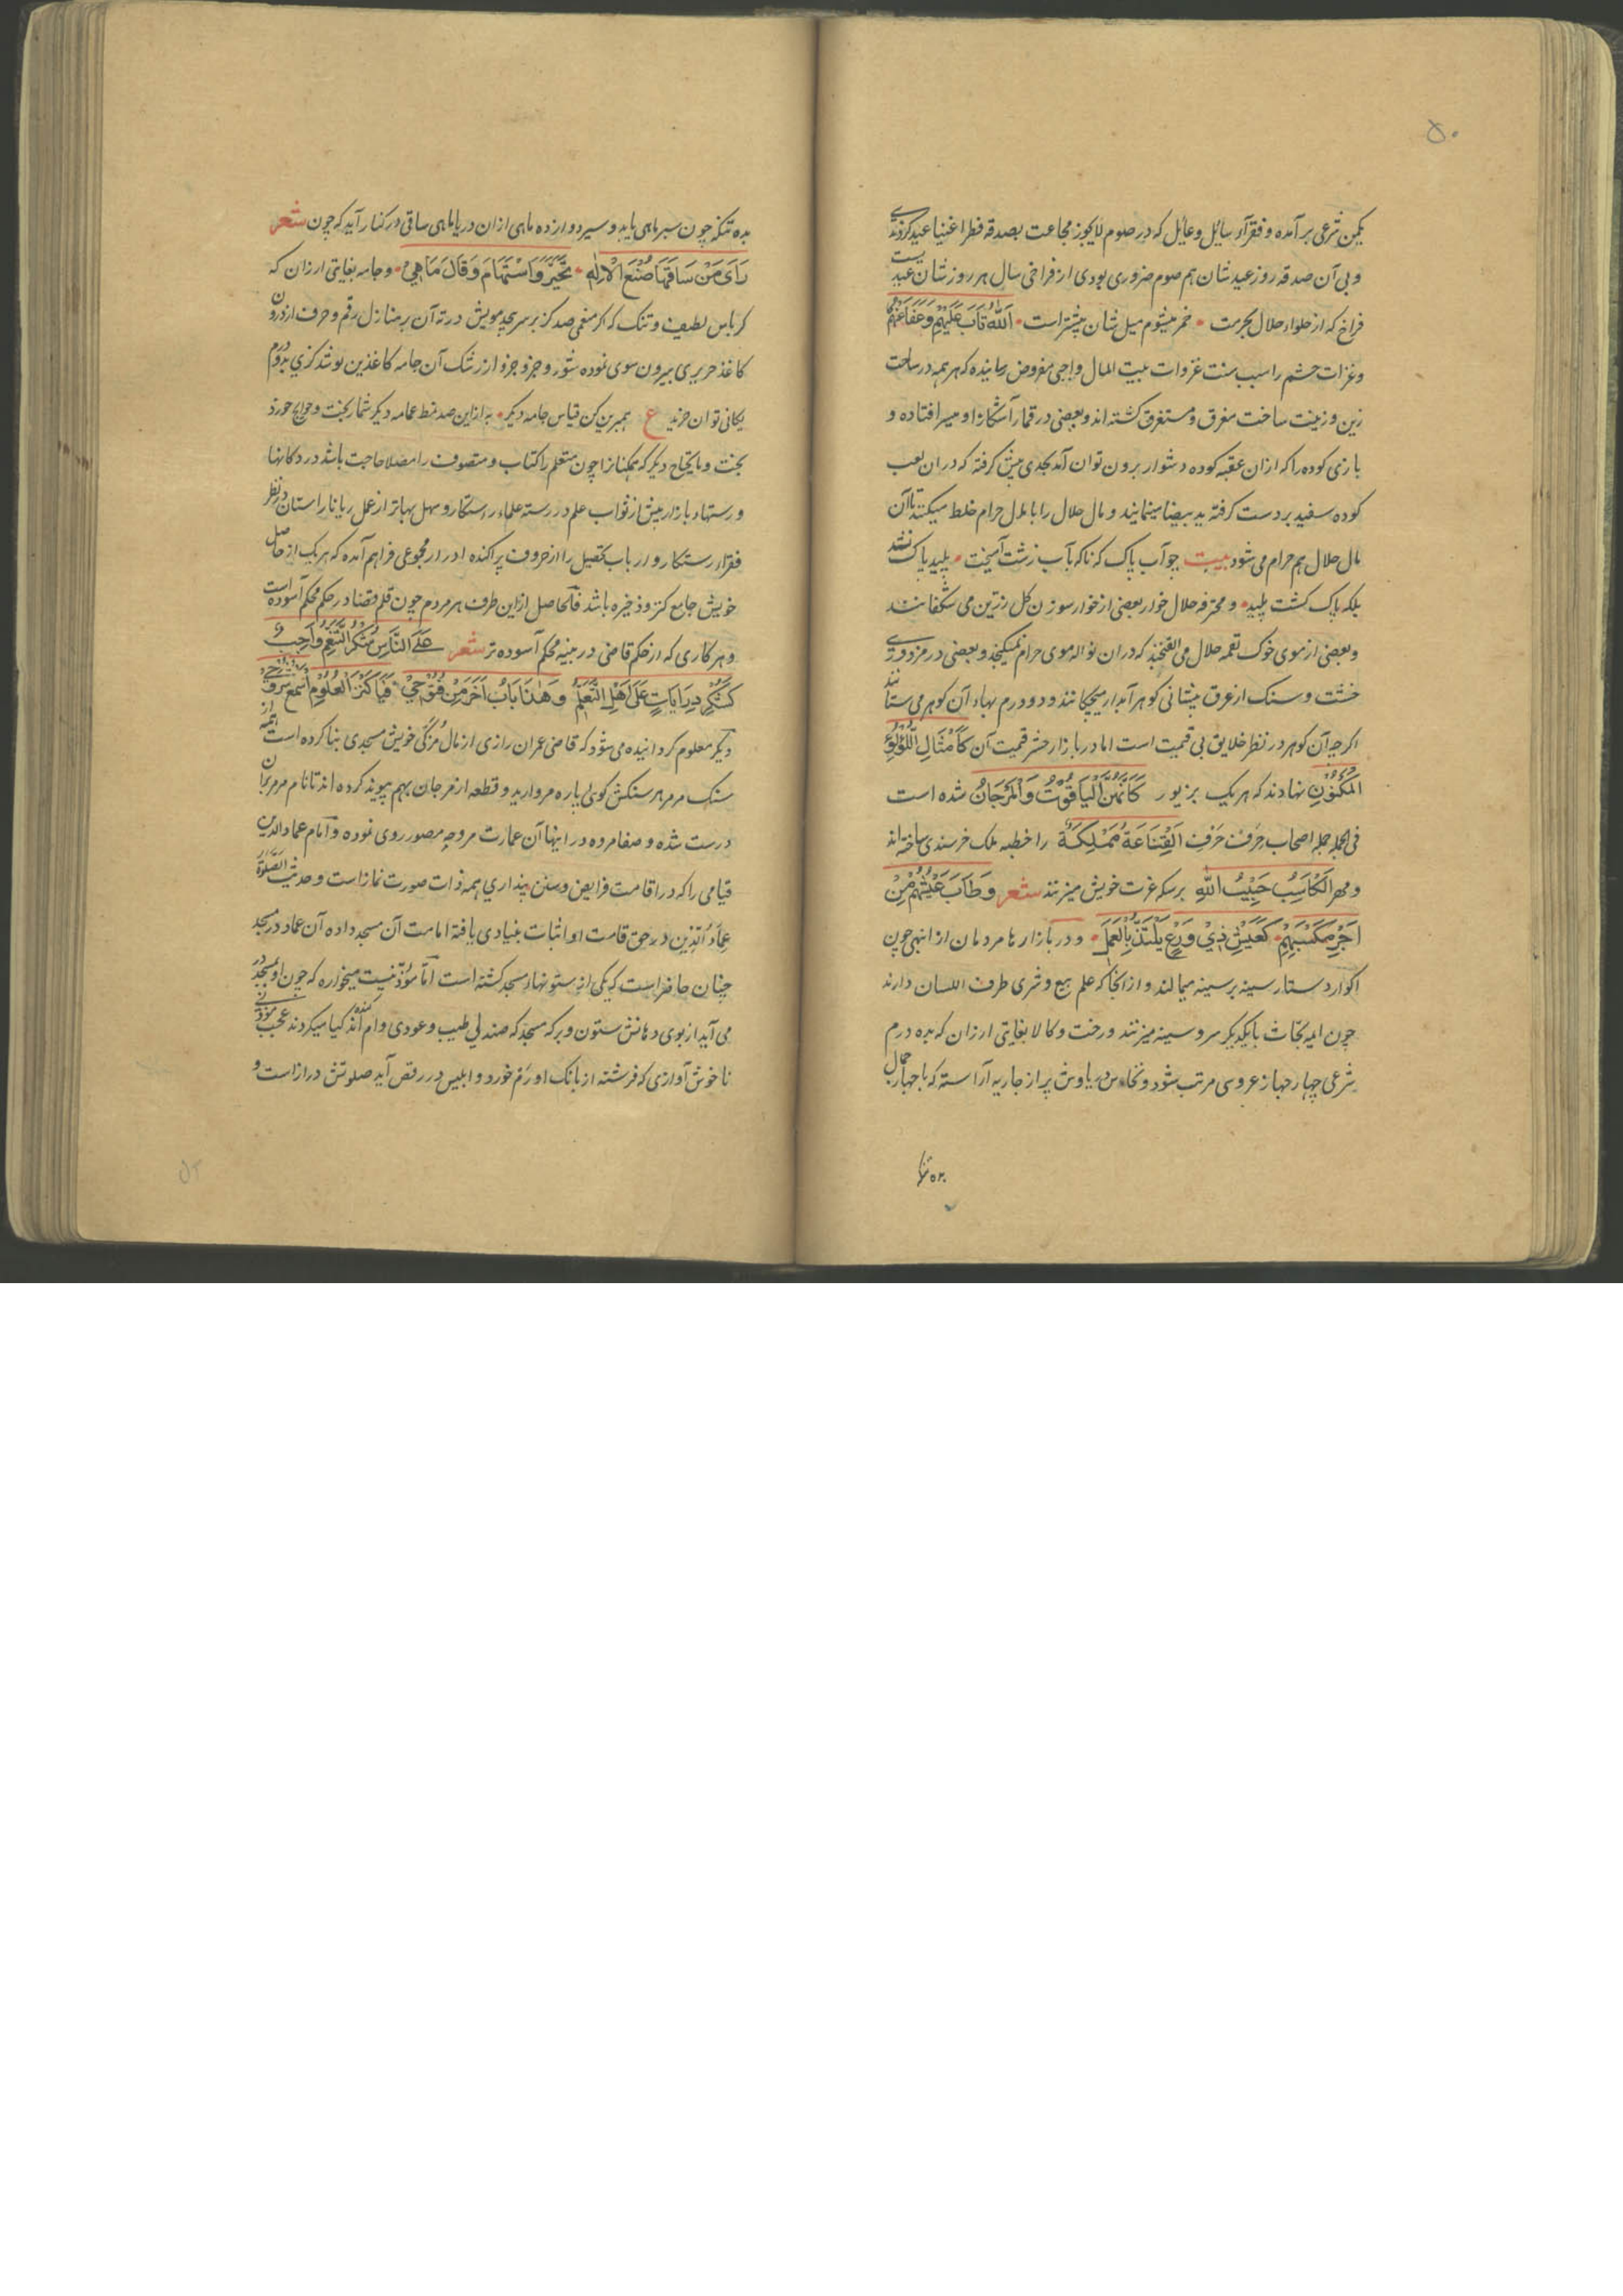 ۵۰
یکمن شرعی برآمده و فقرآء سایل و عایل که در صوم لایجوز مجاعت بصدقه فطر اغنیا عید کردندی
و بی آن صدقه روز عید شان هم صوم ضروری بودی از فراخی سال هر روز شان عیدیست
فراخ که از حلواء حلال بحرمت • خمر میشوم میل شان بیشتر است • اَللّٰهُ تَابَ عَلَیْهِمْ وَعَفَا عَنْهُمْ
و غزات حشم را سبب سنت غزوات بیت المال واجبی مفروض رسانیده که هر همه در ساحت
زین و زینت ساخت مغرق و مستغرق گشته اند و بعضی در قمار آشکارا و میسر افتاده و
بازی کوده را که ازان عقبه کوده دشوار برون توان آمد بجدی پیش گرفته که دران لعب
کوده سفید بر دست گرفته ید بیضا مینمایند و مال حلال را با مال حرام خلط میکنند تا آن
مال حلال هم حرام می شود بیت چو آب پاک که ناگه بآب زشت آمیخت • پلید پاک نشد
بلکه پاک گشت پلید • و محترفه حلال خوار بعضی از خوار سوزن گل زرین می شکفانند
و بعضی از موی خوک لقمه حلال می الفنجند که دران نواله موی حرام نمیگنجد و بعضی در مزدوری
خشت و سنگ از عرق پیشانی گوهر آبدار میچکانند و دو درم بهاء آن گوهر می ستانند
اگرچه آن گوهر در نظر خلایق بی قیمت است اما در بازار حشر قیمت آن کَاَمْثَالِ اللُّؤْلُؤِ
الْمَكْنُوْنِ نهادند که هر یک بزیور كَاَنَّهُنَّ الْيَاقُوْتُ وَالْمَرْجَانُ شده است
فی الجمله جمله اصحاب حرفت حَرْفِ اَلْقَنَاعَةُ مَمْلِكَةٌ را خطبه ملک خرسندی ساخته اند
و مهر الْكَاسِبُ حَبِيْبُ اللّٰهِ بر سکه عزت خویش میزنند شعر وَطَابَ عَيْشُهُمْ مِنْ
اَجْرِ مَكْسَبِهِمْ • كَعَيْشِ ذِيْ وَرَعٍ يَلْتَذُّ بِالْعَمَلِ • و در بازارها مردمان از انبهی چون
اکوار دستار سینه بر سینه میمالند و از انجا که علم بیع و شری طرف اللسان دارند
چون ایمه بحّاث با یکدیگر سر و سینه میزنند و رخت و کالا بغایتی ارزان که بده درم
شرعی چهار جهاز عروسی مرتب شود و نخاس دریاوش پر از جاریه آراسته که با جهار جمال
بده تنگه چون سبر ماهی یابد و سیر دوازده ماهی ازان دریا ماهی ساقی در کنار آید که چون شعر
رَاَى مَنْ سَاقَهَا صُنْعَ الْاِلٰهِ • تَحَيَّرَ وَاسْتَهَامَ وَقَالَ مَاهِيْ • و جامه بغایتی ارزان که
کرباس لطیف و تنک که اگر منعمی صد گز بر سر پیچد مویش در ته آن بر منازل رقم و حرف از درون
کاغذ حریری بیرون سوی نموده شود و جزو جزو از رشک آن جامه کاغذین پوشد گزی بدو درم
یگانی توان خرید ع همبرین کن قیاس جامه دیگر • به ازاین صد نمط عمامه دیگر شمار بخت و حوایج خورد
بخت و مایحتاج دیگر که ممکنانرا چون متعلم را کتاب و متصوف را مصلا حاجت باشد در دکانها
و رستهاء بازار بیش از ثواب علم در رسته علماء رستگار و سهل بها تر از عمل ریا نا راستان در نظر
فقراء رستگار و ارباب تحصیل را از حروف پراکنده ادرار مجموعی فراهم آمده که هر یک از حاصل
خویش جامع کنز و ذخیره باشد فالحاصل ازاین طرف هر مردم چون قلم قضا در حکم محکم آسوده است
و هر کاری که از حکم قاضی در بینه محکم آسوده تر شعر عَلَى النَّاسِ شُكْرُ التَّنَعُّمِ وَاجِبٌ وَ
كَشُكْرِ دِرَايَاتٍ عَلَى اَهْلِ التَّعَلُّمِ وَهٰذَا بَابُ اٰخَرَ مِنْ فُتُوْحِيْ • فَيَا كَنْزَ الْعُلُوْمِ اسْمَعْ
دیگر معلوم گردانیده می شود که قاضی عمران رازی از مال مزکّی خویش مسجدی بنا کرده است
سنگ مرمر هر سنگش گوئی پاره مروارید و قطعه از مرجان بهم پیوند کرده اند تا نام مرمر بران
درست شده و صفا مروه در اینها آن عمارت مروجه مصور روی نموده و آمام عماد الدین
قیامی را که در اقامت فرایض و سنن پنداری همه ذات صورت نماز است و حدیث الصلوة
عِمَادُ الدِّين در حق قامت او اثبات بنیادی یافته امامت آن مسجد داده آن عماد در مسجد
چنان حاضر است که یکی از ستونهاء مسجد گشته است امّا مؤذّنیست میخواره که چون او بمسجد در
می آید از بوی دهانش ستون و برگه مسجد که صندلی طیب و عودی وام کنده اند گیا میگردند عجب موذنی
ناخوش آوازی که فرشته از بانگ او رم خورد و ابلیس در رقص آید صلوتش دراز است و
۵۲